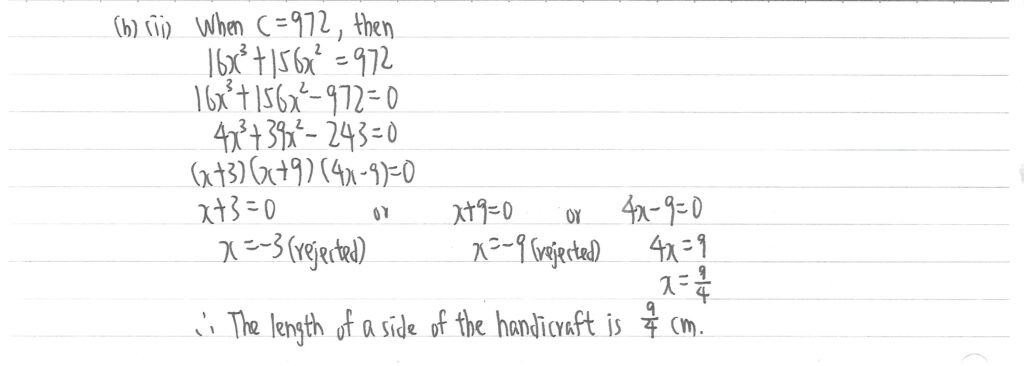 (b) (ii) When C=972, then
16x³+156x² = 972
16x³+156x²-972=0
4x³+39x²- 243=0
(x+3)(x+9)(4x-9)=0
x+3=0 or x+9=0 or 4x-9=0
x=-3 (rejected) x=-9 (rejected) 4x=9
x=9/4
∴ The length of a side of the handicraft is 9/4 cm.